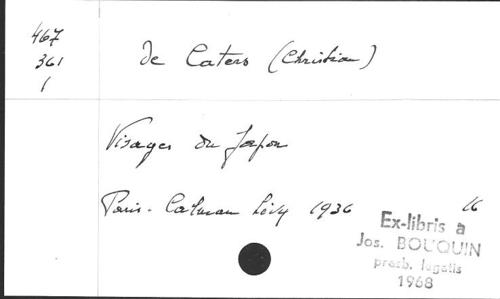 467
361
1
de Caters (Christian)
Visages du Japon
Paris - Calman Lévy 1936 16
Ex-libris a
Jos. BOUQUIN
presb. lugatis
1968